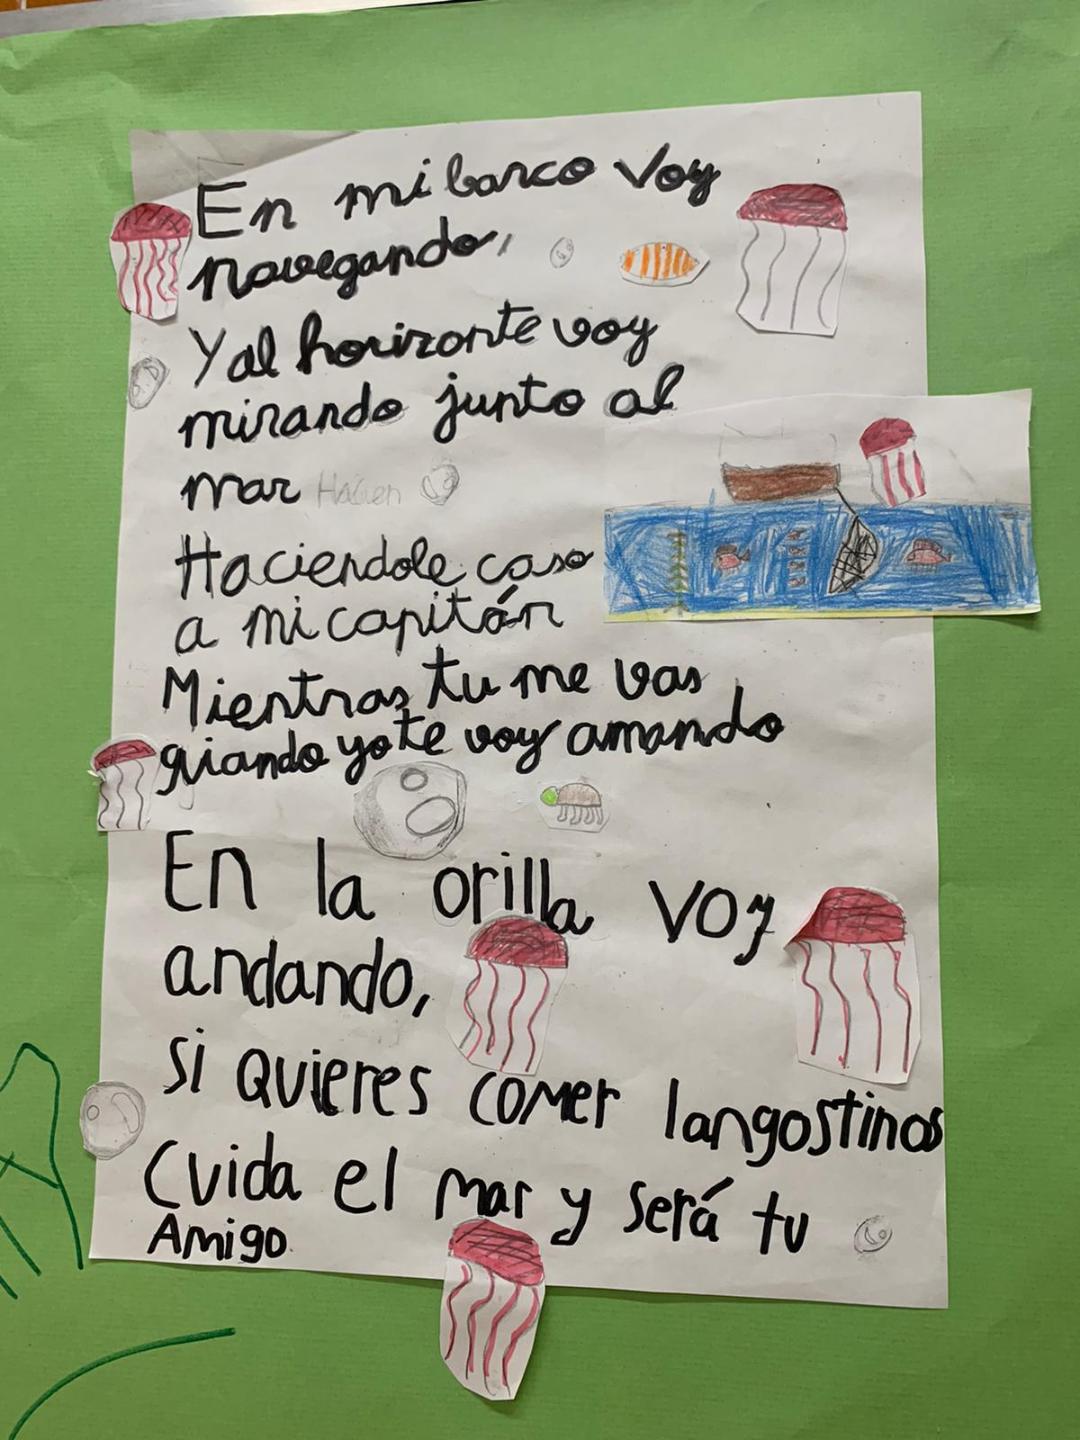 En mi barco voy
navegando,
Y al horizonte voy
mirando junto al
mar
Haciendole caso
a mi capitán
Mientras tu me vas
guiando yo te voy amando
En la orilla voy
andando,
si quieres comer langostinos
Cuida el mar y será tu
Amigo.